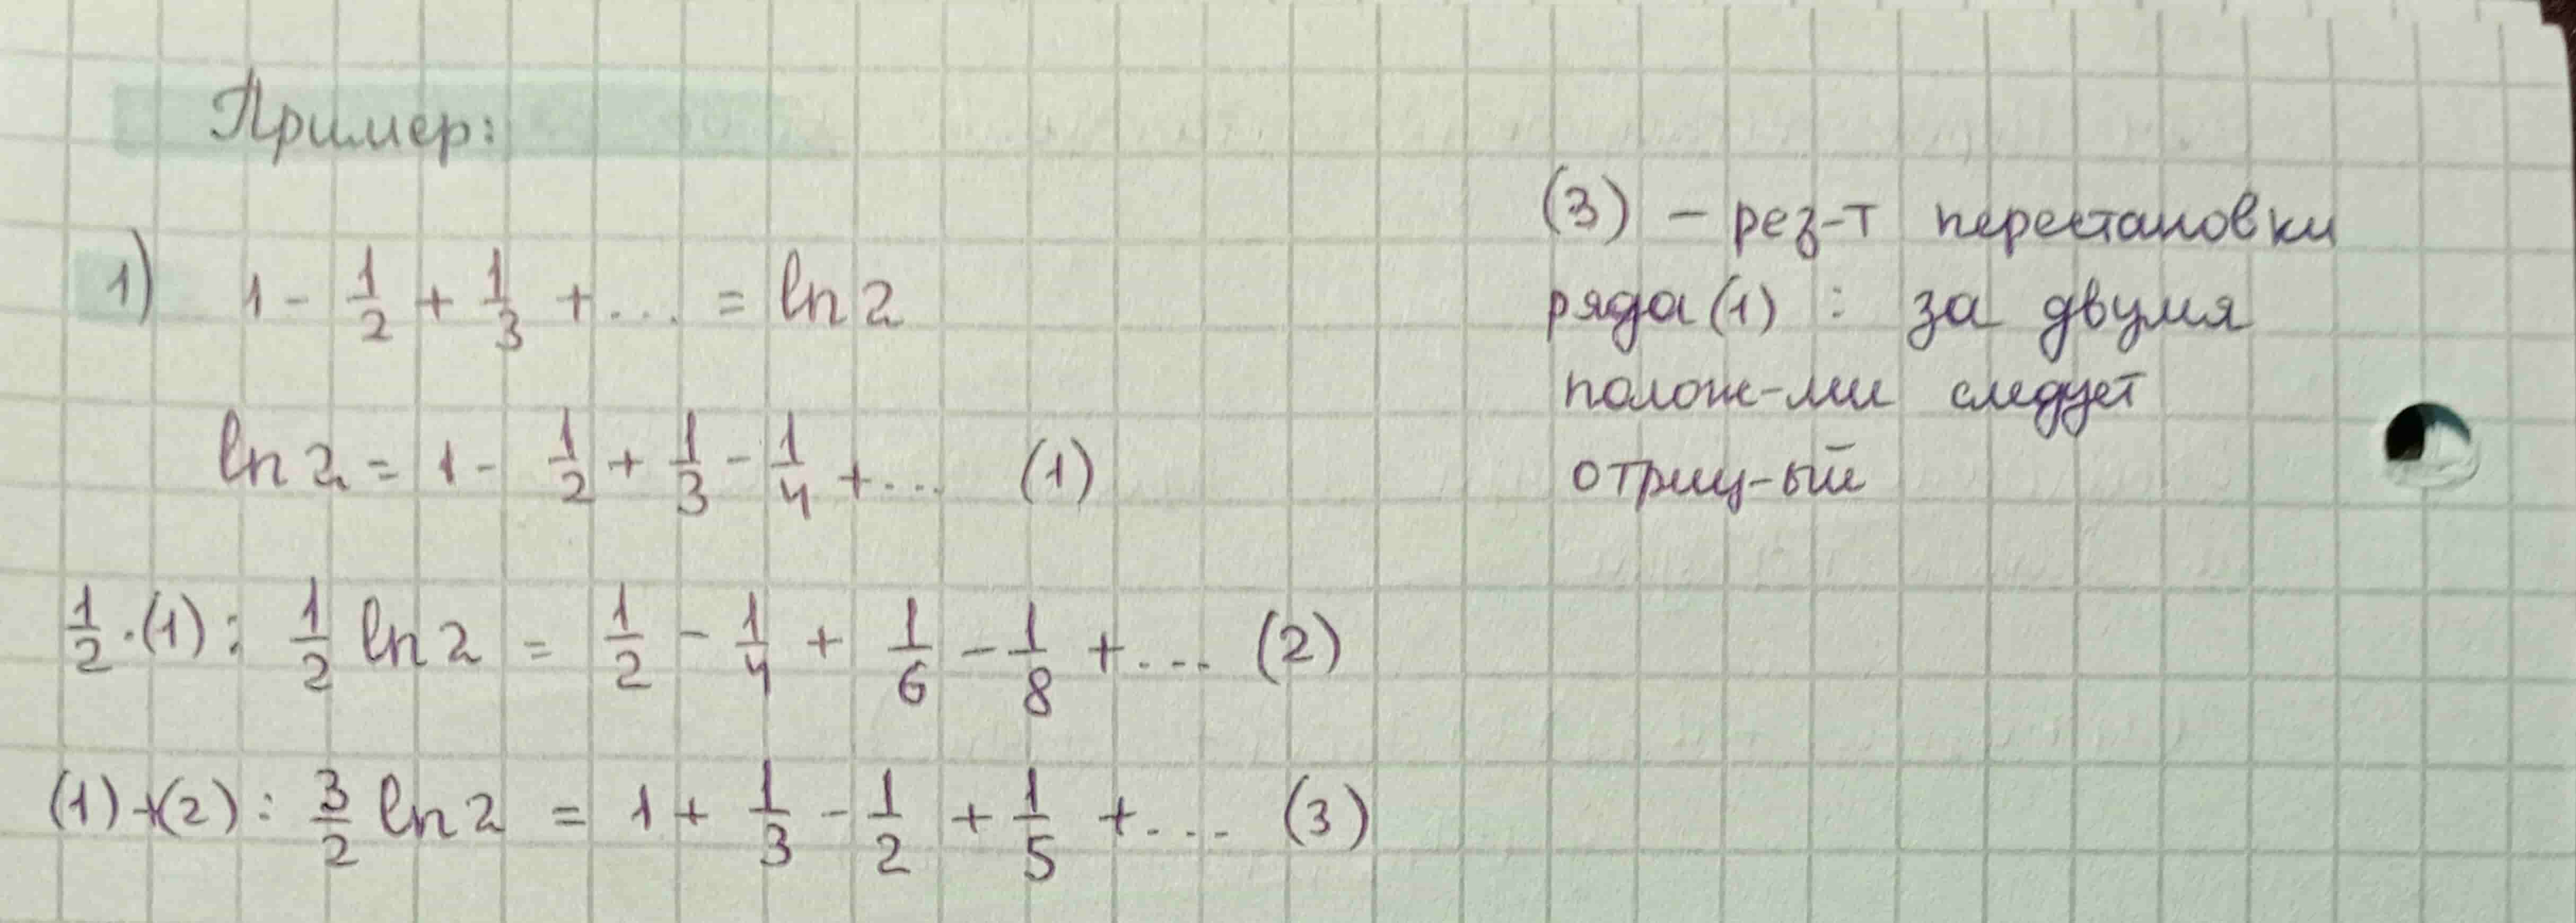 Пример:
1) 1 - 1/2 + 1/3 + ... = ln 2
ln 2 = 1 - 1/2 + 1/3 - 1/4 + ... (1)
1/2 · (1) : 1/2 ln 2 = 1/2 - 1/4 + 1/6 - 1/8 + ... (2)
(1)+(2) : 3/2 ln 2 = 1 + 1/3 - 1/2 + 1/5 + ... (3)
(3) – рез-т перестановки
ряда (1) : за двумя
полож-ми следует
отриц-ый